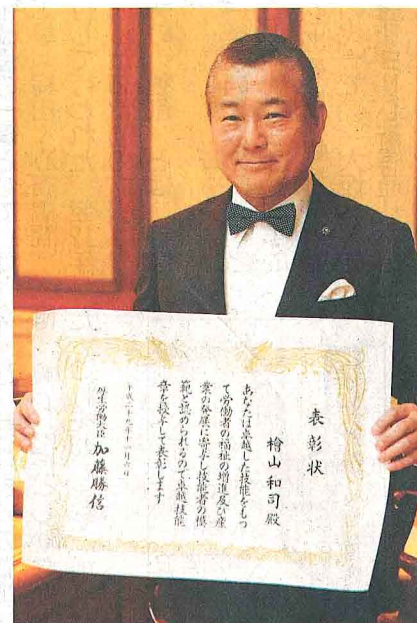 表彰状
檜山和司殿
あなたは卓越した技能をもつ
て労働者の福祉の増進及び産
業の発展に寄与し技能者の模
範と認められるので卓越技能
章を授与して表彰します
平成二十九年十一月六日
厚生労働大臣 加藤勝信